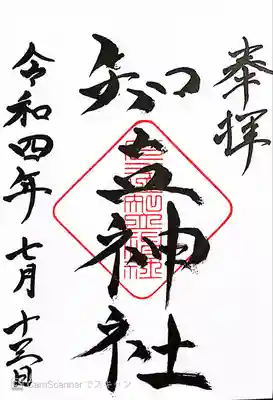 奉拝
知立神社
令和四年 七月 十三日
CamScannerでスキャン